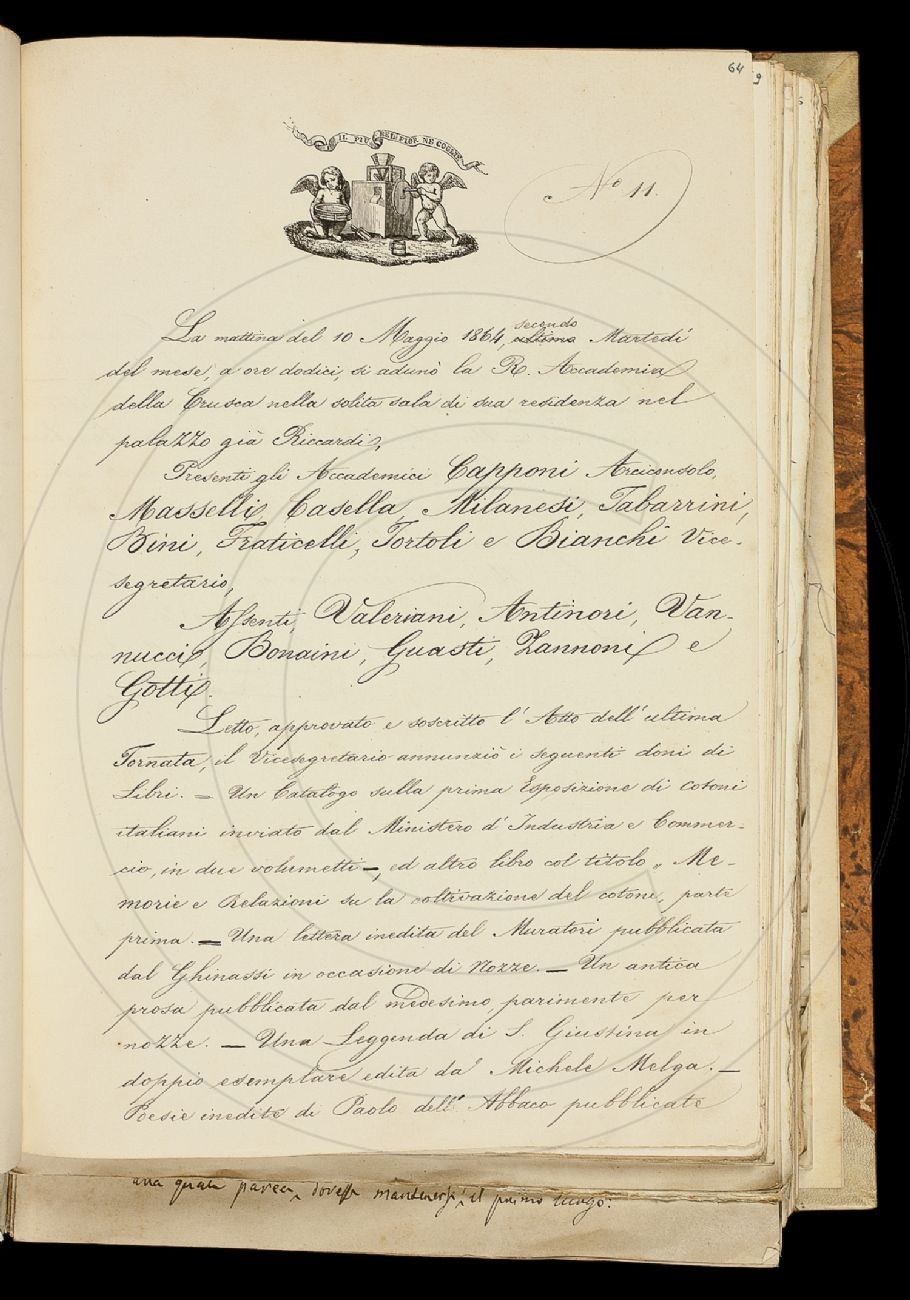 64
IL PIÙ BEL FIOR NE COGLIE
N° 11.
La mattina del 10 Maggio 1864, ultimo secondo Martedi
del mese, a ore dodici, si adunò la R. Accademia
della Crusca nella solita sala di sua residenza nel
palazzo già Riccardi,
Presenti gli Accademici Capponi Arciconsolo,
Masselli, Casella, Milanesi, Tabarrini,
Bini, Fraticelli, Tortoli e Bianchi Vice-
segretario,
Assenti, Valeriani, Antinori, Van-
nucci, Bonaini, Guasti, Zannoni e
Gotti.
Letto, approvato e soscritto l' Atto dell' ultima
Tornata, il Vicesegretario annunziò i seguenti doni di
Libri. — Un Catalogo sulla prima Esposizione di cotoni
italiani inviato dal Ministero d' Industria e Commer-
cio, in due volumetti —, ed altro libro col titolo „ Me-
morie e Relazioni su la coltivazione del cotone, parte
prima. — Una lettera inedita del Muratori pubblicata
dal Ghinassi in occasione di Nozze. — Un antica
prosa pubblicata dal medesimo, parimente per
nozze. — Una Leggenda di S. Giustina in
doppio esemplare edita da' Michele Melga. —
Poesie inedite di Paolo dell' Abbaco pubblicate
una quale parea, dovesse mantenersi il primo luogo.